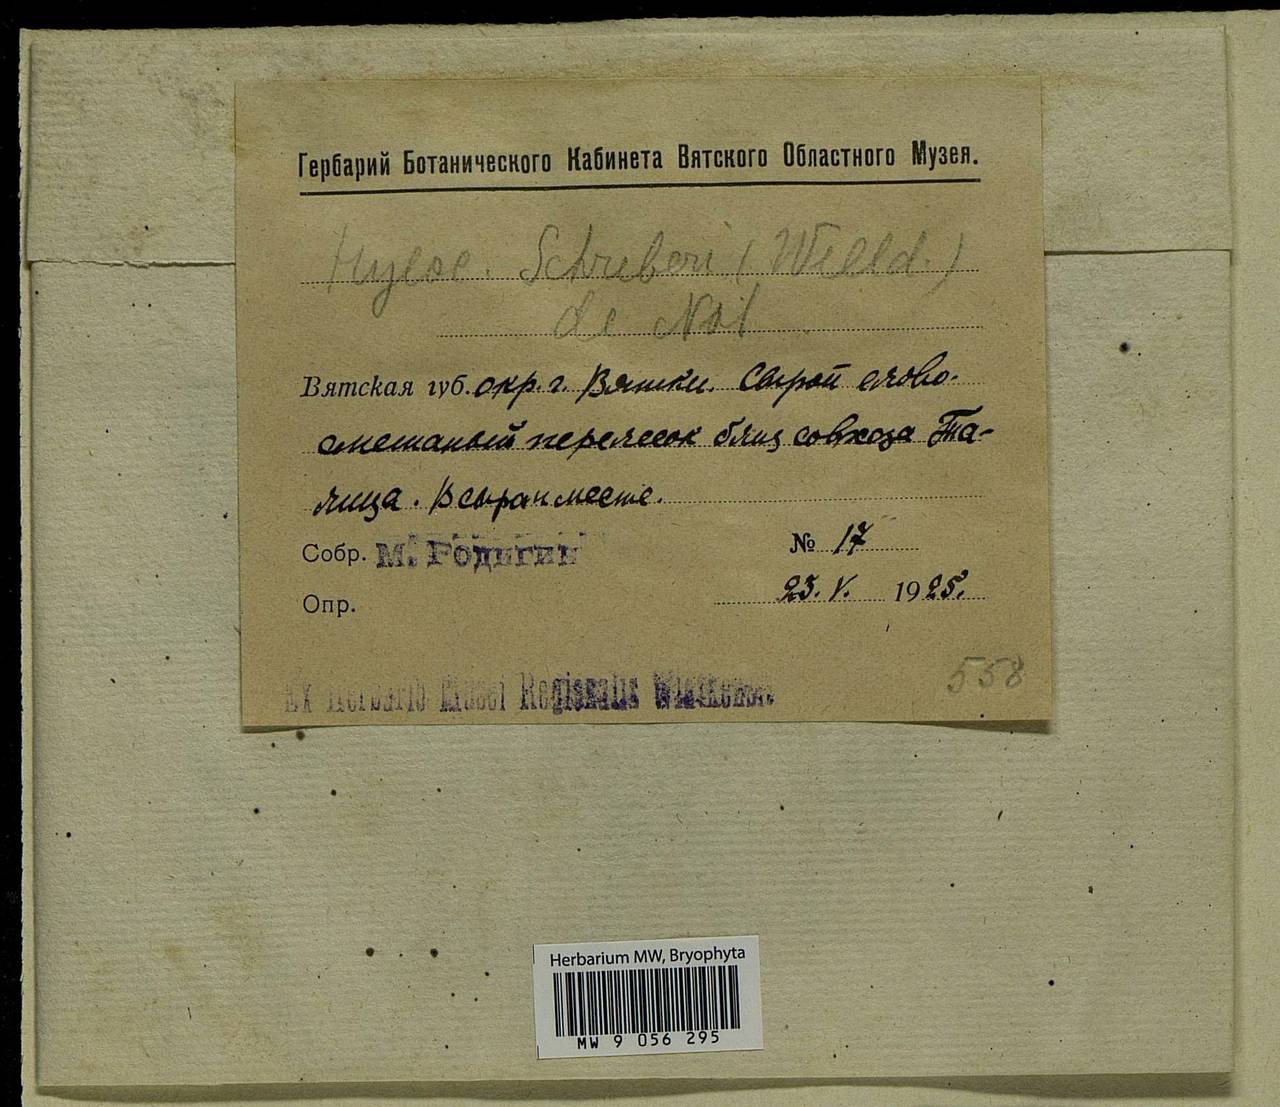 Гербарий Ботанического Кабинета Вятского Областного Музея.
Hyloc. Schreberi (Willd.)
de Not
Вятская губ. окр. г. Вятки. Сырой елово-
смешаный перелесок близ совхоза Та-
лица. В сыром месте.
Собр. М. Родыгин № 17
Опр. 23. V. 1925.
Ex Herbario Musei Regionalis Wiatkensis.
558
Herbarium MW, Bryophyta
MW 9 056 295